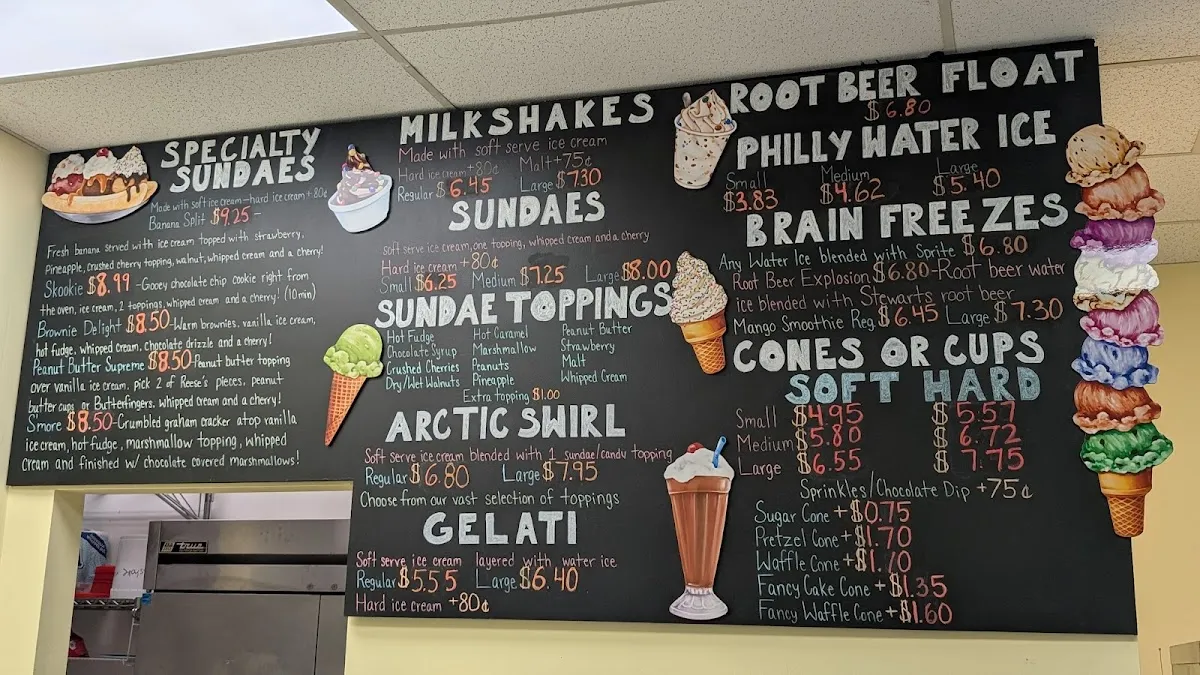 SPECIALTY
SUNDAES
Made with soft ice cream-hard ice cream+80¢
Banana Split $9.25 -
Fresh banana served with ice cream topped with strawberry,
Pineapple, crushed cherry topping, walnut, whipped cream and a cherry!
Skookie $8.99 -Gooey chocolate chip cookie right from
the oven, ice cream, 2 toppings, whipped cream and a cherry! (10min)
Brownie Delight $8.50-Warm brownies, vanilla ice cream,
hot fudge, whipped cream, chocolate drizzle and a cherry!
Peanut Butter Supreme $8.50-Peanut butter topping
over vanilla ice cream, pick 2 of Reese's pieces, peanut
butter cups, or Butterfingers, whipped cream and a cherry!
S'more $8.50-Crumbled graham cracker atop vanilla
ice cream, hot fudge, marshmallow topping, whipped
cream and finished w/ chocolate covered marshmallows!
MILKSHAKES
Made with soft serve ice cream
Hard ice cream +80¢ Malt +75¢
Regular $6.45 Large $7.30
SUNDAES
soft serve ice cream, one topping, whipped cream and a cherry
Hard ice cream +80¢
Small $6.25 Medium $7.25 Large $8.00
SUNDAE TOPPINGS
Hot Fudge Hot Caramel Peanut Butter
Chocolate Syrup Marshmallow Strawberry
Crushed Cherries Peanuts Malt
Dry/Wet Walnuts Pineapple Whipped Cream
Extra topping $1.00
ARCTIC SWIRL
Soft serve ice cream blended with 1 sundae/candy topping
Regular $6.80 Large $7.95
Choose from our vast selection of toppings
GELATI
Soft serve ice cream layered with water ice
Regular $5.55 Large $6.40
Hard ice cream +80¢
ROOT BEER FLOAT
$6.80
PHILLY WATER ICE
Small Medium Large
$3.83 $4.62 $5.40
BRAIN FREEZES
Any Water Ice blended with Sprite $6.80
Root Beer Explosion $6.80-Root beer water
ice blended with Stewarts root beer
Mango Smoothie Reg. $6.45 Large $7.30
CONES OR CUPS
SOFT HARD
Small $4.95 $5.57
Medium $5.80 $6.72
Large $6.55 $7.75
Sprinkles/Chocolate Dip +75¢
Sugar Cone +$0.75
Pretzel Cone +$1.70
Waffle Cone +$1.70
Fancy Cake Cone +$1.35
Fancy Waffle Cone +$1.60
true